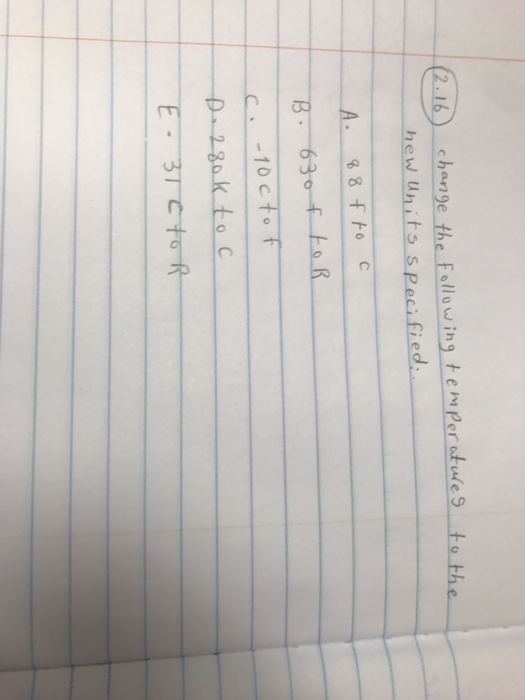 2.16 change the following temperatures to the
new units specified:
A. 88 f to c
B. 630 f to R
C. -10 c to f
D. 280k to C
E. 31 C to R